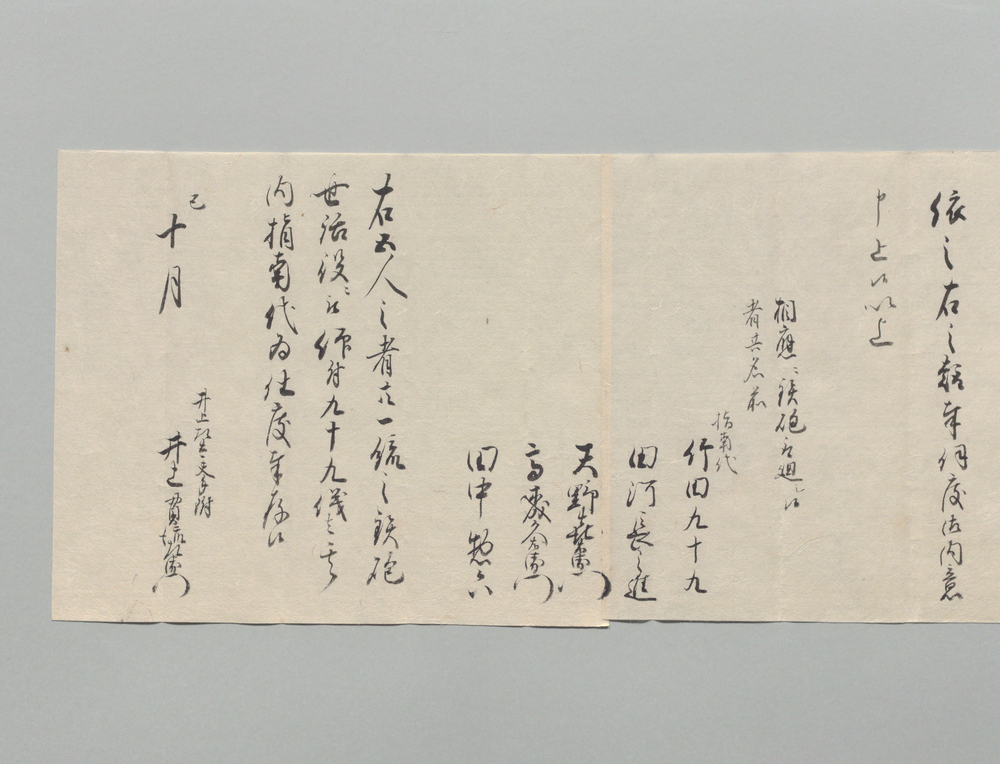 依之右之趣奉伺度御内意
申上候以上
相應ニ鉄砲相廻シ候
者共名前
指南代
竹田九十九
田河長之進
天野喜左衛門
高蔵右衛門
田中惣六
右五人之者共一統之鉄砲
世話役ニ被仰付九十九儀者其
内指南代為仕度奉存候
巳
十月
井上
井上貫流左衛門